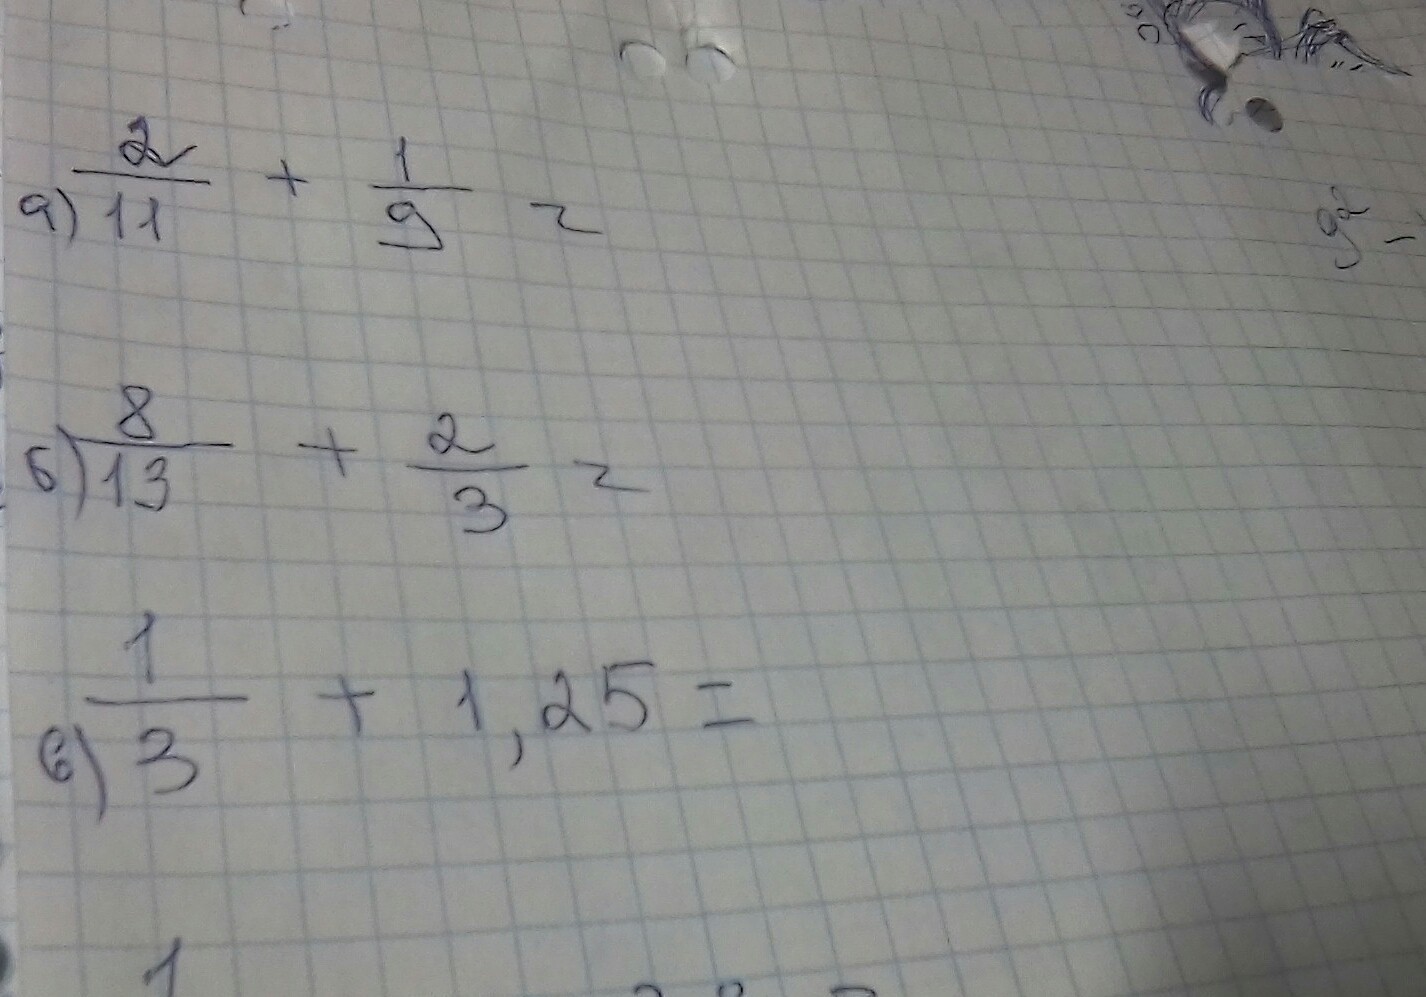 а) 2/11 + 1/9 =
б) 8/13 + 2/3 =
в) 1/3 + 1,25 =
1